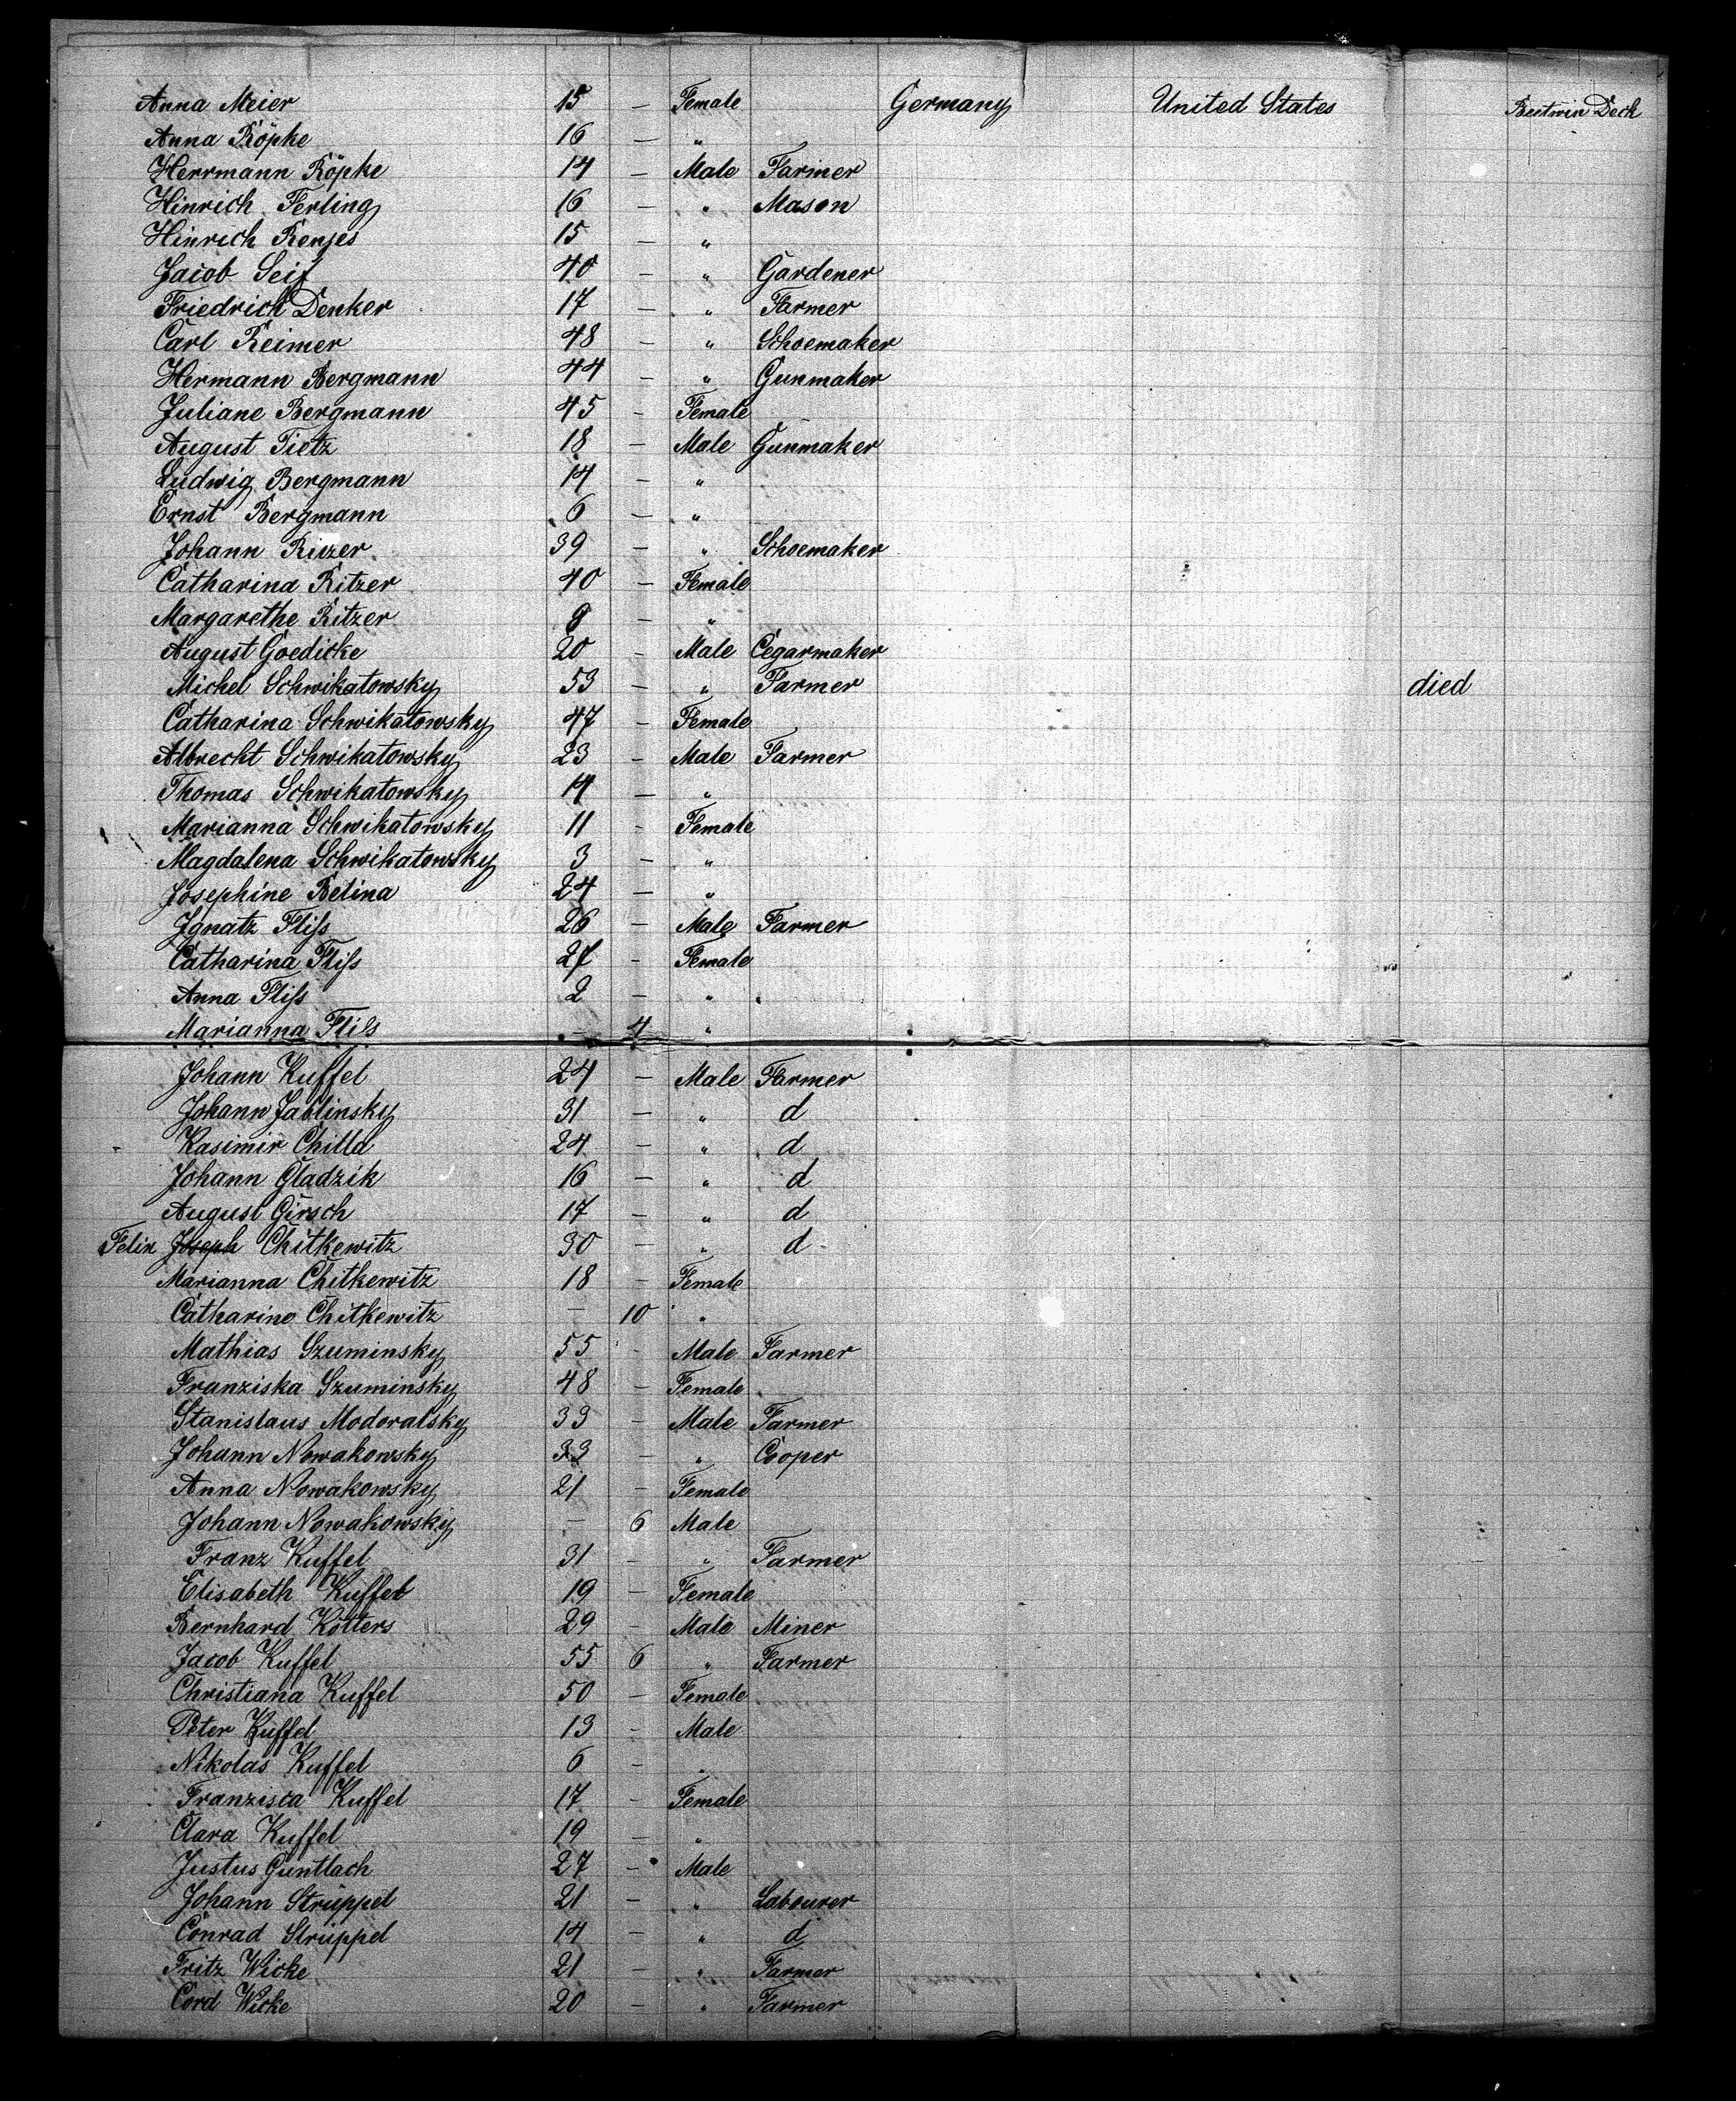 Anna Meier 15 — Female Germany United States Beetwin Deck
Anna Röpke 16 — "
Herrmann Röpke 14 — Male Farmer
Hinrich Ferling 16 — " Mason
Hinrich Renjes 15 — "
Jacob Seif 40 — " Gardener
Friedrich Denker 17 — " Farmer
Carl Reimer 48 — " Schoemaker
Hermann Bergmann 44 — " Gunmaker
Juliane Bergmann 45 — Female
August Tietz 18 — Male Gunmaker
Ludwig Bergmann 14 — "
Ernst Bergmann 6 — "
Johann Ritzer 39 — " Schoemaker
Catharina Ritzer 40 — Female
Margarethe Ritzer 9 — "
August Goedicke 20 — Male Cegarmaker
Michel Schwikatowsky 53 — " Farmer died
Catharina Schwikatowsky 47 — Female
Albrecht Schwikatowsky 23 — Male Farmer
Thomas Schwikatowsky 14 — "
Marianna Schwikatowsky 11 — Female
Magdalena Schwikatowsky 3 — "
Josephine Betina 24 — "
Ignatz Fliss 26 — Male Farmer
Catharina Fliss 27 — Female
Anna Fliss 2 — "
Marianna Fliss — 4 "
Johann Kuffel 24 — Male Farmer
Johann Jablinsky 31 — " d
Kasimir Chilla 24 — " d
Johann Gladzik 16 — " d
August Girsch 17 — " d
Felix Joseph Chitkewitz 30 — " d
Marianna Chitkewitz 18 — Female
Catharine Chitkewitz — 10 "
Mathias Szuminsky 55 — Male Farmer
Franziska Szuminsky 48 — Female
Stanislaus Modoralsky 33 — Male Farmer
Johann Nowakowsky 33 — " Cooper
Anna Nowakowsky 21 — Female
Johann Nowakowsky — 6 Male
Franz Kuffel 31 — " Farmer
Elisabeth Kuffel 19 — Female
Bernhard Kötters 29 — Male Miner
Jacob Kuffel 55 6 " Farmer
Christiana Kuffel 50 — Female
Peter Kuffel 13 — Male
Nikolas Kuffel 6 — "
Franzisca Kuffel 17 — Female
Clara Kuffel 19 — "
Justus Guntlach 27 — Male
Johann Strüppel 21 — " Labourer
Conrad Strüppel 14 — " d
Fritz Wicke 21 — " Farmer
Cord Wicke 20 — " Farmer